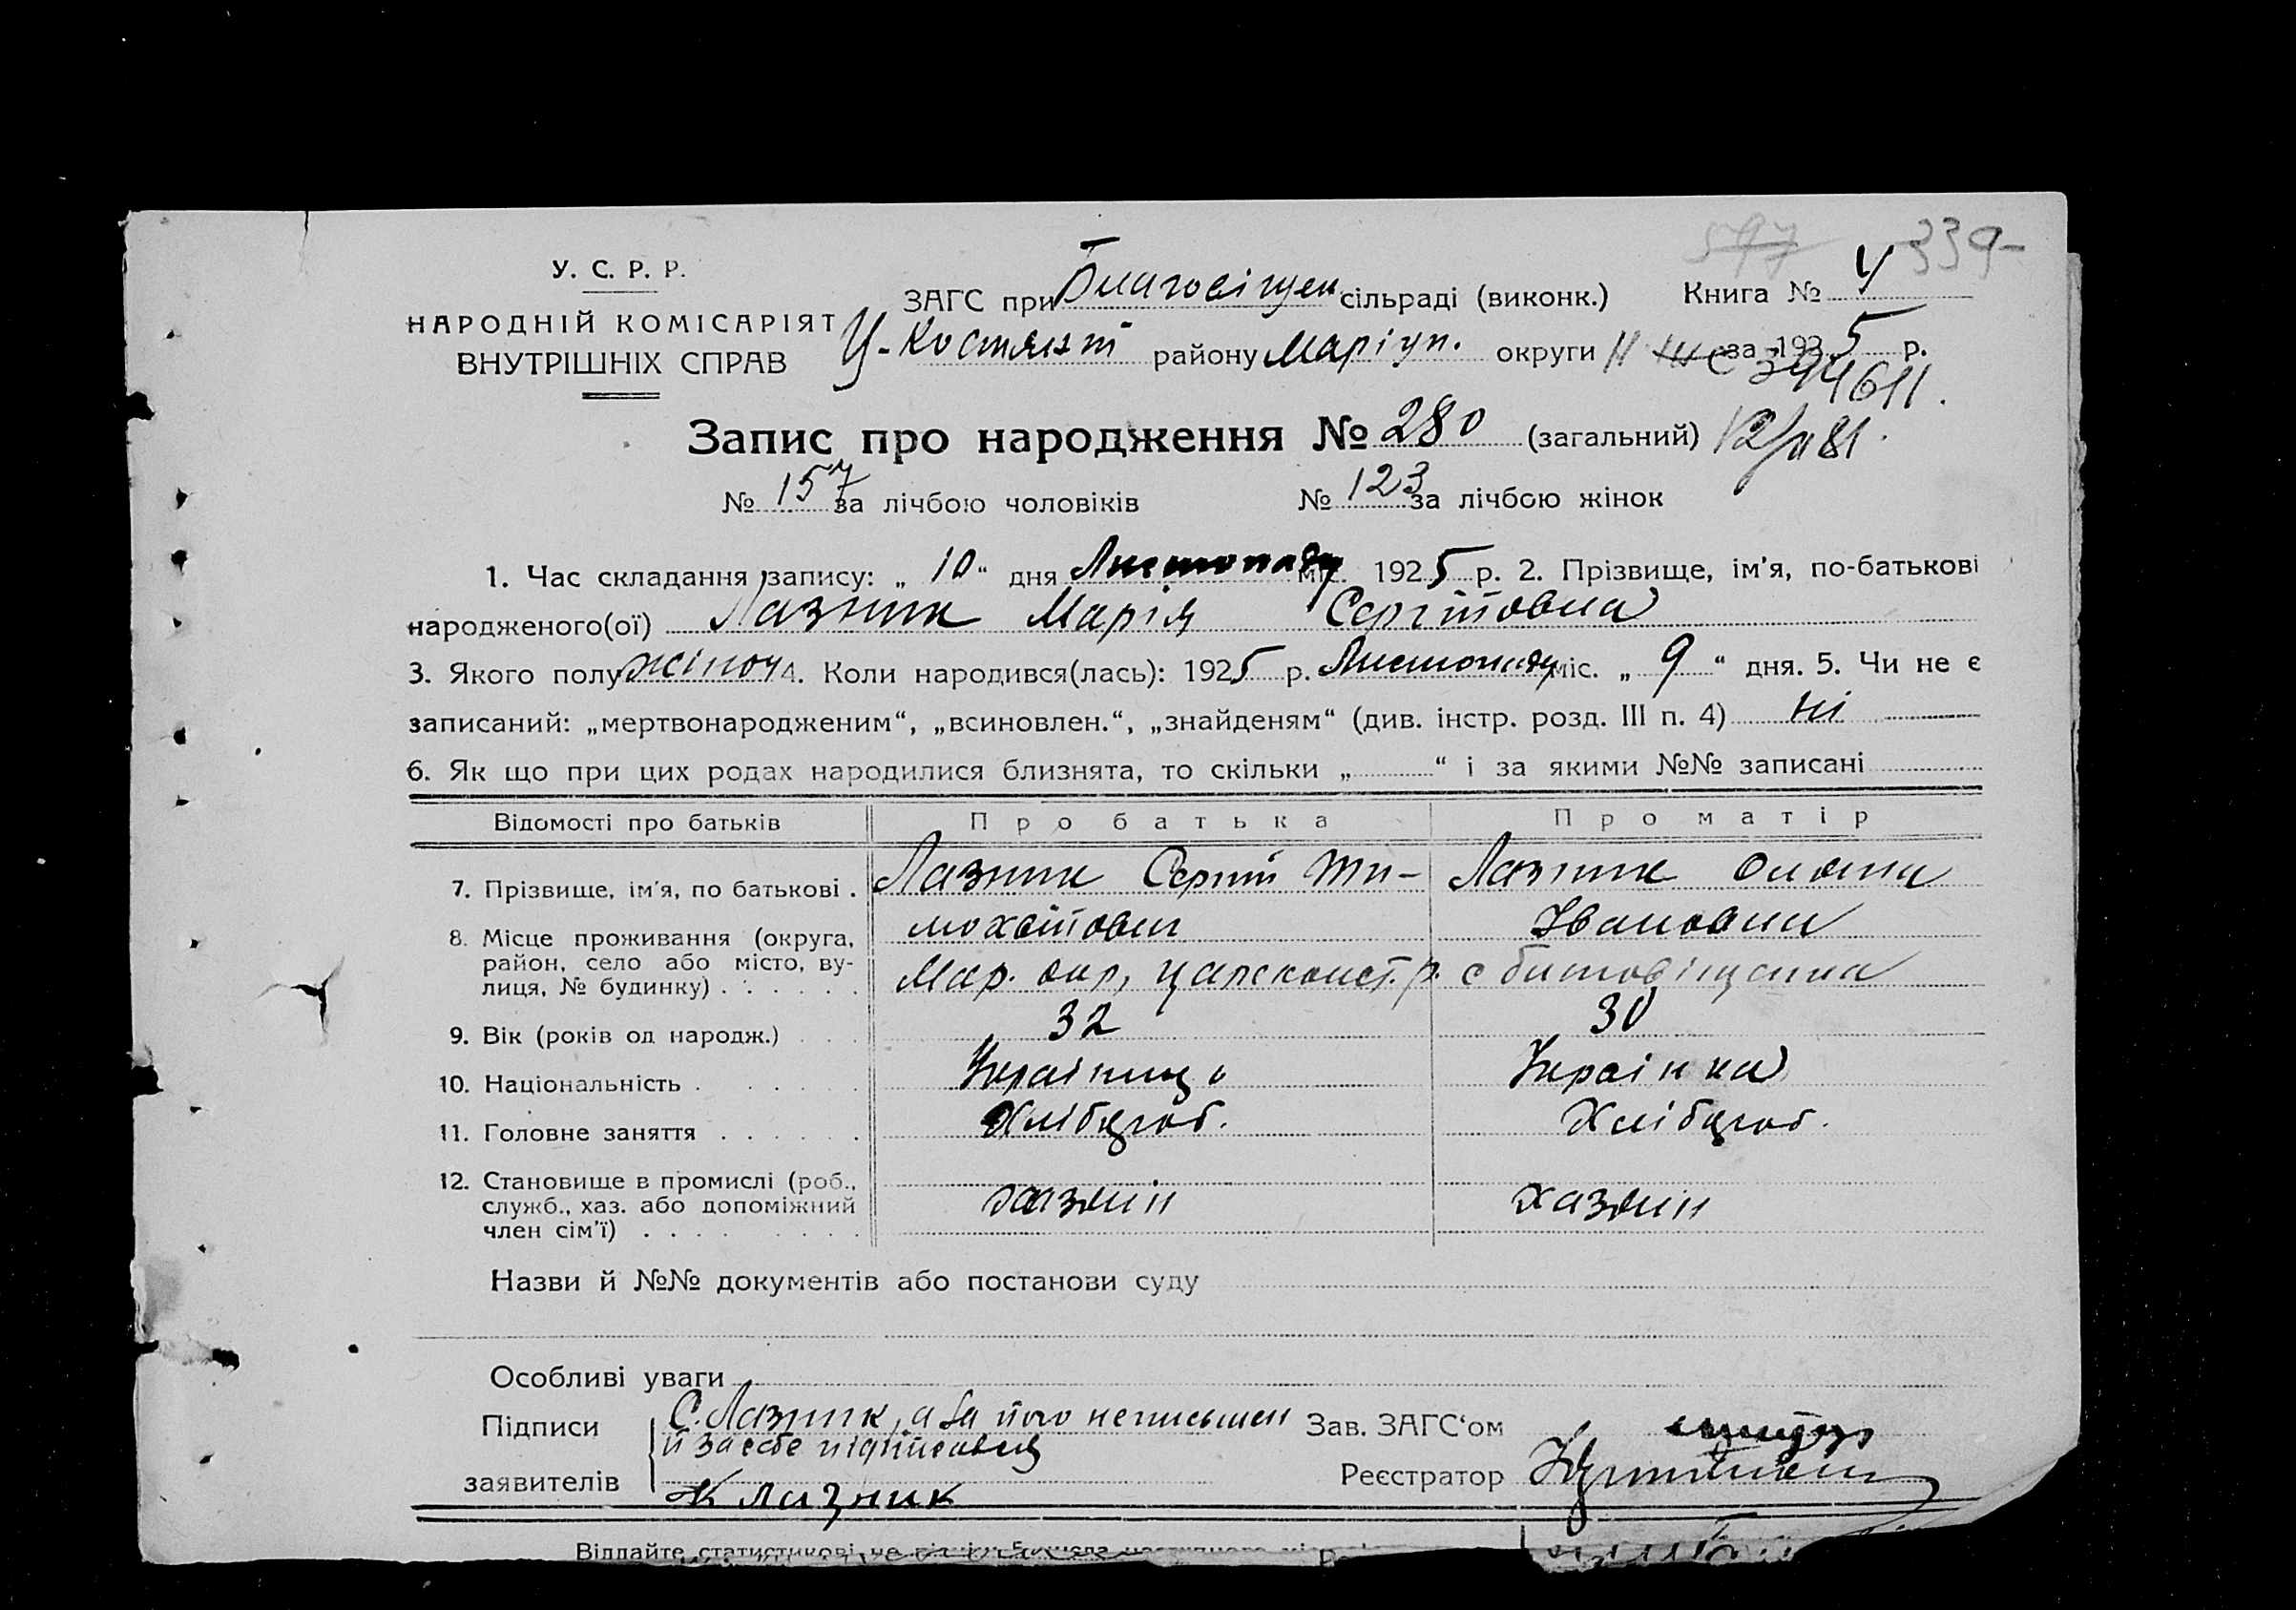 597 339-
У. С. Р. Р.
ЗАГС при Благовіщен сільраді (виконк.) Книга № 4
НАРОДНІЙ КОМІСАРІЯТ
ВНУТРІШНІХ СПРАВ
Ц-Костянт району Маріуп. округи за 1925 р.
394611.
Запис про народження № 280 (загальний)
№ 157 за лічбою чоловіків № 123 за лічбою жінок
1. Час складання запису: „ 10 “ дня Листопаду міс. 1925 р. 2. Прізвище, ім’я, по-батькові
народженого(ої) Лазник Марія Сергійовна
3. Якого полу жіноч 4. Коли народився(лась): 1925 р. Листопаду міс. „ 9 “ дня. 5. Чи не є
записаний: „мертвонародженим“, „всиновлен.“, „знайденям“ (див. інстр. розд. III п. 4) Ні
6. Як що при цих родах народилися близнята, то скільки „ “ і за якими №№ записані
Відомості про батьків Про батька Про матір
7. Прізвище, ім’я, по батькові . Лазник Сергій Ти- Лазник Олена
мохвійович Івановна
8. Місце проживання (округа,
район, село або місто, ву-
лиця, № будинку) . . . . . . Мар. окр, царсконст. р. с благовіщенка
9. Вік (років од народж.) . . . 32 30
10. Національність . . . . . . Українець Українка
11. Головне заняття . . . . . . Хлібороб. Хлібороб.
12. Становище в промислі (роб.,
служб., хаз. або допоміжний
член сім’ї) . . . . . . . . . хазяин хазяин
Назви й №№ документів або постанови суду
Особливі уваги
Підписи С. Лазник, а за його неписьмен Зав. ЗАГС‘ом
й засебе підписавсь
заявителів Лазник Реєстратор
Віддайте статистикові не пізніш 5 числа наступного